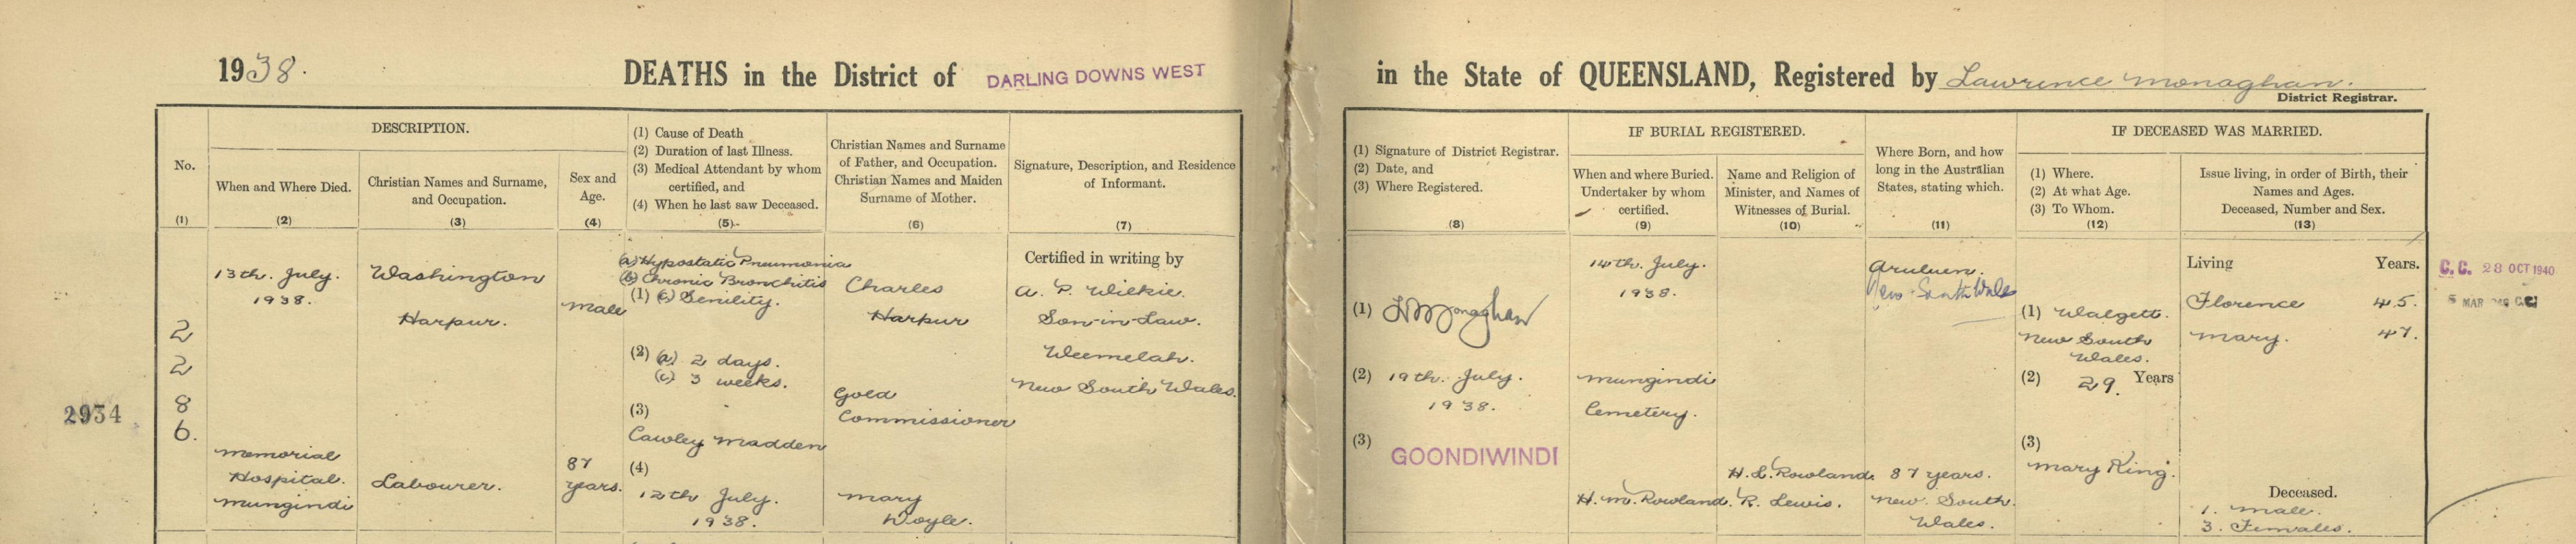 1938.
DEATHS in the District of DARLING DOWNS WEST
in the State of QUEENSLAND, Registered by Lawrence Monaghan.
District Registrar.
No.
(1)
DESCRIPTION.
When and Where Died.
(2)
Christian Names and Surname,
and Occupation.
(3)
Sex and
Age.
(4)
(1) Cause of Death
(2) Duration of last Illness.
(3) Medical Attendant by whom
certified, and
(4) When he last saw Deceased.
(5)
Christian Names and Surname
of Father, and Occupation.
Christian Names and Maiden
Surname of Mother.
(6)
Signature, Description, and Residence
of Informant.
(7)
(1) Signature of District Registrar.
(2) Date, and
(3) Where Registered.
(8)
IF BURIAL REGISTERED.
When and where Buried.
Undertaker by whom
certified.
(9)
Name and Religion of
Minister, and Names of
Witnesses of Burial.
(10)
Where Born, and how
long in the Australian
States, stating which.
(11)
IF DECEASED WAS MARRIED.
(1) Where.
(2) At what Age.
(3) To Whom.
(12)
Issue living, in order of Birth, their
Names and Ages.
Deceased, Number and Sex.
(13)
2934
2
2
8
6.
13th. July.
1938.
Memorial
Hospital.
Mungindi
Washington
Harpur.
Labourer.
Male
87
years.
(a) Hypostatic Pneumonia
(b) Chronic Bronchitis
(1) (c) Senility.
(2) (a) 2 days.
(c) 3 weeks.
(3)
Cawley Madden
(4)
12th July.
1938.
Charles
Harpur
Gold
Commissioner
Mary
Doyle.
Certified in writing by
A. P. Wilkie.
Son-in-Law.
Weemelah.
New South Wales.
(1) L Monaghan
(2) 19th. July.
1938.
(3)
GOONDIWINDI
14th. July.
1938.
Mungindi
Cemetery.
H. M. Rowland.
H. L. Rowland.
R. Lewis.
Araluen.
New South Wales
87 years.
New South
Wales.
(1) Walgett.
New South
Wales.
(2) 29. Years
(3)
Mary King.
Living Years.
Florence 45.
Mary. 47.
Deceased.
1. Male.
3. Females.
C.C. 28 OCT 1940